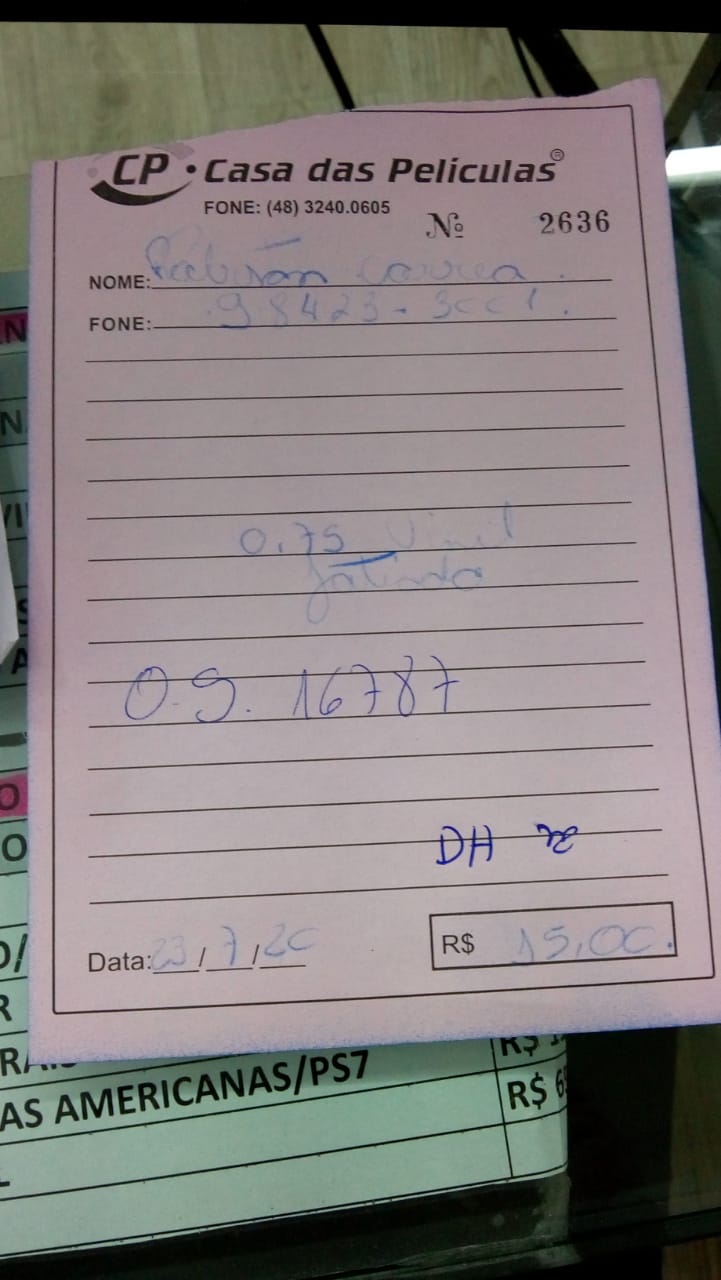 CP · Casa das Películas®
FONE: (48) 3240.0605
Nº 2636
NOME: Correa.
FONE: 98423-3001.
0.75 Vinil
O.S. 16787
DH
Data: 23/7/20 R$ 15,00.
AS AMERICANAS/PS7
R$
R$